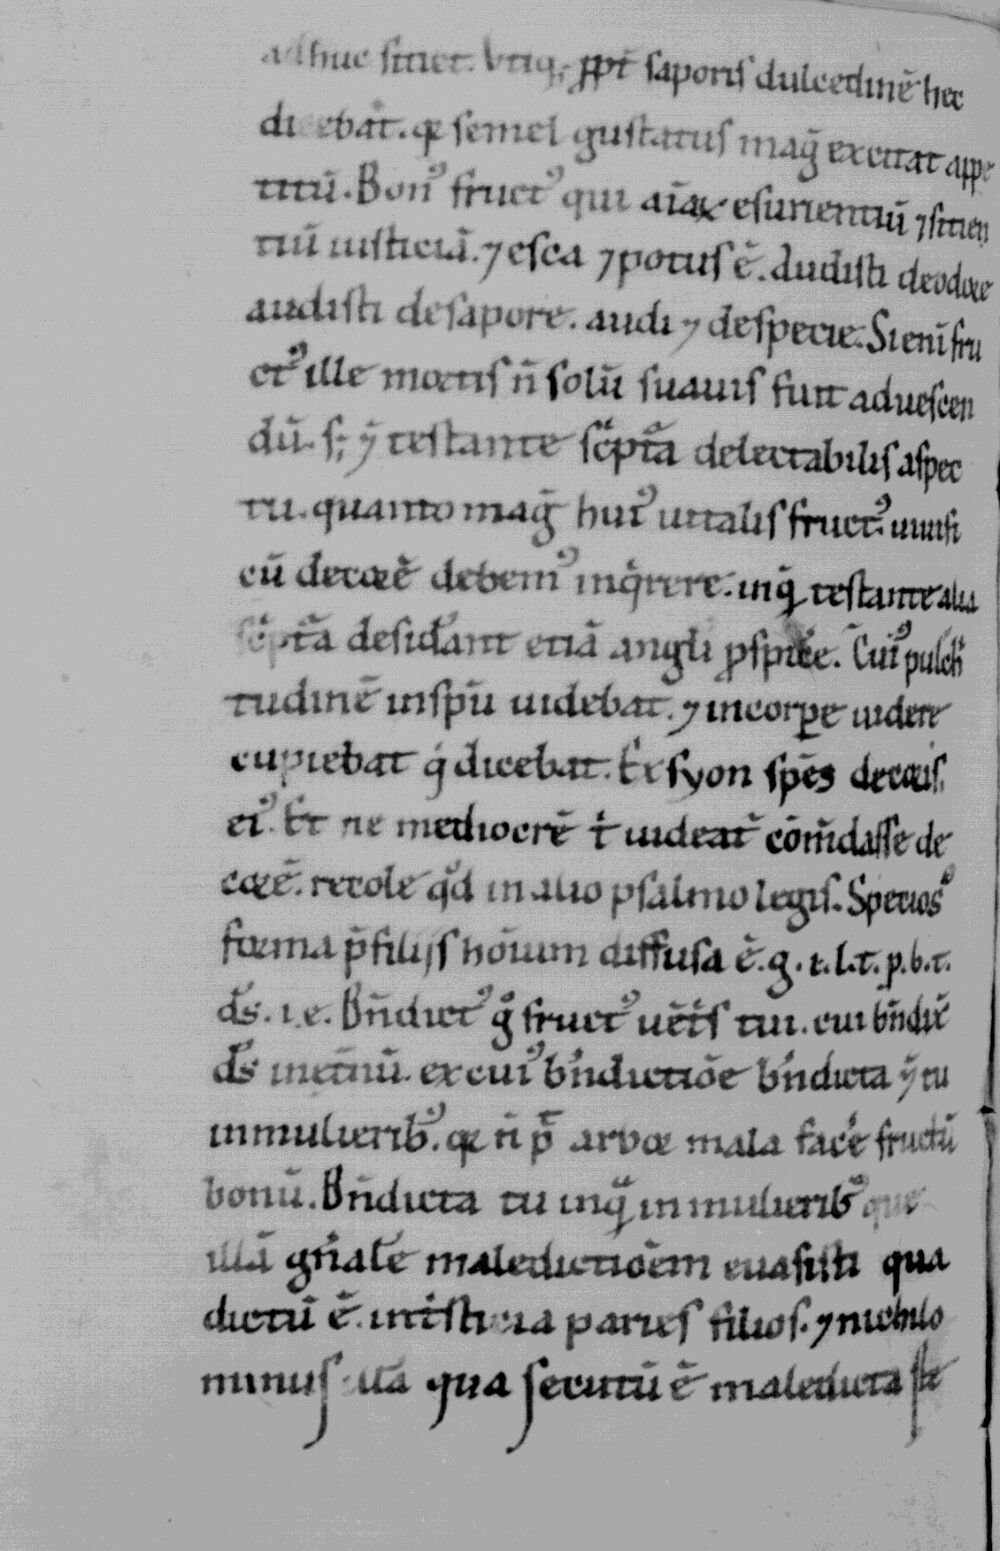 adhuc sitiet. Vtiq; ꝓpt̄ saporis dulcedinē hec
dicebat. qꝛ semel gustatus maḡ excitat appe
titū. Bonꝰ fructꝰ qui aīaꝝ esurientiū ⁊ sitien
tiū iusticiā. ⁊ esca ⁊ potus ē. Audisti de odore
audisti de sapore. audi ⁊ de specie. Si enī fru
ctꝰ ille mortis n̄ solū suauis fuit ad uescen
dū. s; ⁊̄ testante sc̄ptᷓa delectabilis aspec
tu. quanto maḡ huiꝰ uitalis fructꝰ uiuifi
cū decorē debemꝰ inqͥrere. in qͦ testante alia
sc̄ptᷓa desid̓ant etiā angli ꝓspic̓e. Cuiꝰ pulch̓
tudinē in sp̄u uidebat. ⁊ in corꝑe uidere
cupiebat qͥ dicebat. Ex syon sp̄es decoris.
eiꝰ. Et ne mediocrē t̄ uideat᷑ cōm̄dasse de
corē. recole qͦd in alio psalmo legis. Speciosꝰ
forma p̄ filijs hōium diffusa ē. g. i. l. t. p. b. t.
d̄s. i. e. Bn̄dictꝰ gͦ fructꝰ uēt̄s tui. cui bn̄dix̄
d̄s in et̄nū. ex cuiꝰ bn̄dictiōe bn̄dicta ⁊̄ tu
in mulierib̄ꝰ. qꝛ n̄ p̄t arbor mala fac̓e fructū
bonū. Bn̄dicta tu inqͣ in mulierib̄ꝰ que
illā gn̄alē maledictiōem euasisti qua
dictū ē. in t̄sticia paries filios. ⁊ nichilo
minus illā qua secutū ē maledicta ste